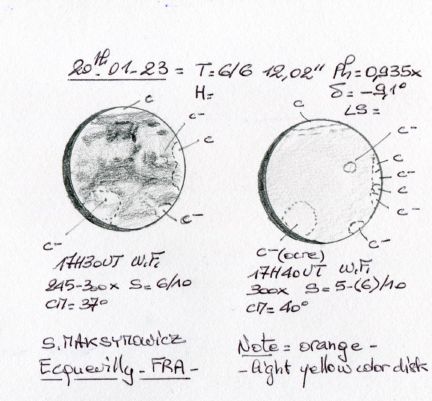 20th-01-23 = T=6/6 12,02" Ph=0,935x
H= δ=-9,1°
LS=
C
C-
C
C-
C-
C
C-
C
C-
C-
C-
C-
C- (ocre)
17H30UT W.Fi
245-300x S=6/10
CM=37°
17H40UT W.Fi
300x S=5-(6)/10
CM=40°
S. MAKSYMOWICZ
Ecquevilly - FRA -
Note = orange -
- light yellow color disk